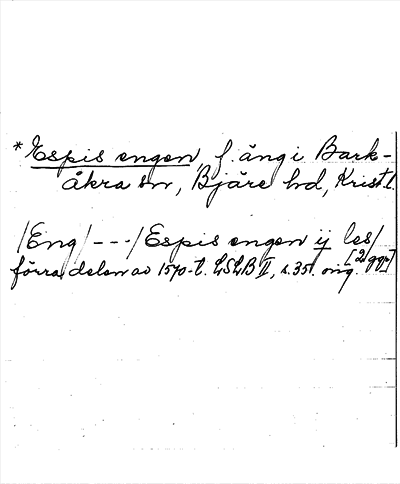 * Espis engen f. äng i Bark-
åkra sn, Bjäre hd, Krist. l.
/Eng/ - - - / Espis engen ij les/
[2 ggr]
förra delen av 1570-t. LSLB II, s. 35. orig.